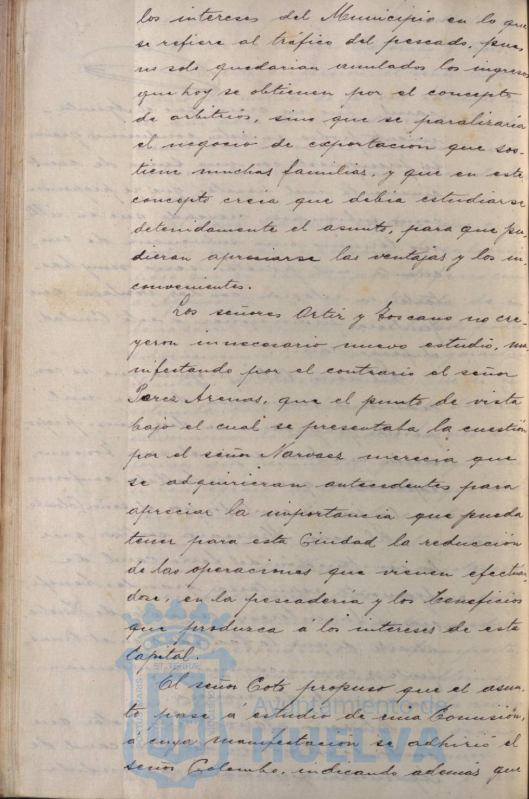 los intereses del Municipio en lo que
se refiere al tráfico del pescado, pues
no solo quedarian anulados los ingresos
que hoy se obtienen por el concepto
de arbitrios, sino que se paralizaria
el negocio de exportación que sos-
tiene muchas familias, y que en este
concepto creia que debia estudiarse
detenidamente el asunto, para que pu-
dieran apreciarse las ventajas y los in-
convenientes.
Los señores Ortiz y Toscano no cre-
yeron innecesario nuevo estudio, ma
nifestando por el contrario el señor
Perez Arenas, que el punto de vista
bajo el cual se presentaba la cuestión
por el señor Narvaez merecia que
se adquirieran antecedentes para
apreciar la importancia que pueda
tener para esta Ciudad la reducción
de las operaciones que vienen efectuan-
dose, en la pescaderia y los beneficios
que produzca á los intereses de esta
Capital.
El señor Coto propuso que el asun-
to pase á estudio de una Comisión,
á cuya manifestación se adhirió el
señor Colombo, indicando además que
Ayuntamiento de
HUELVA